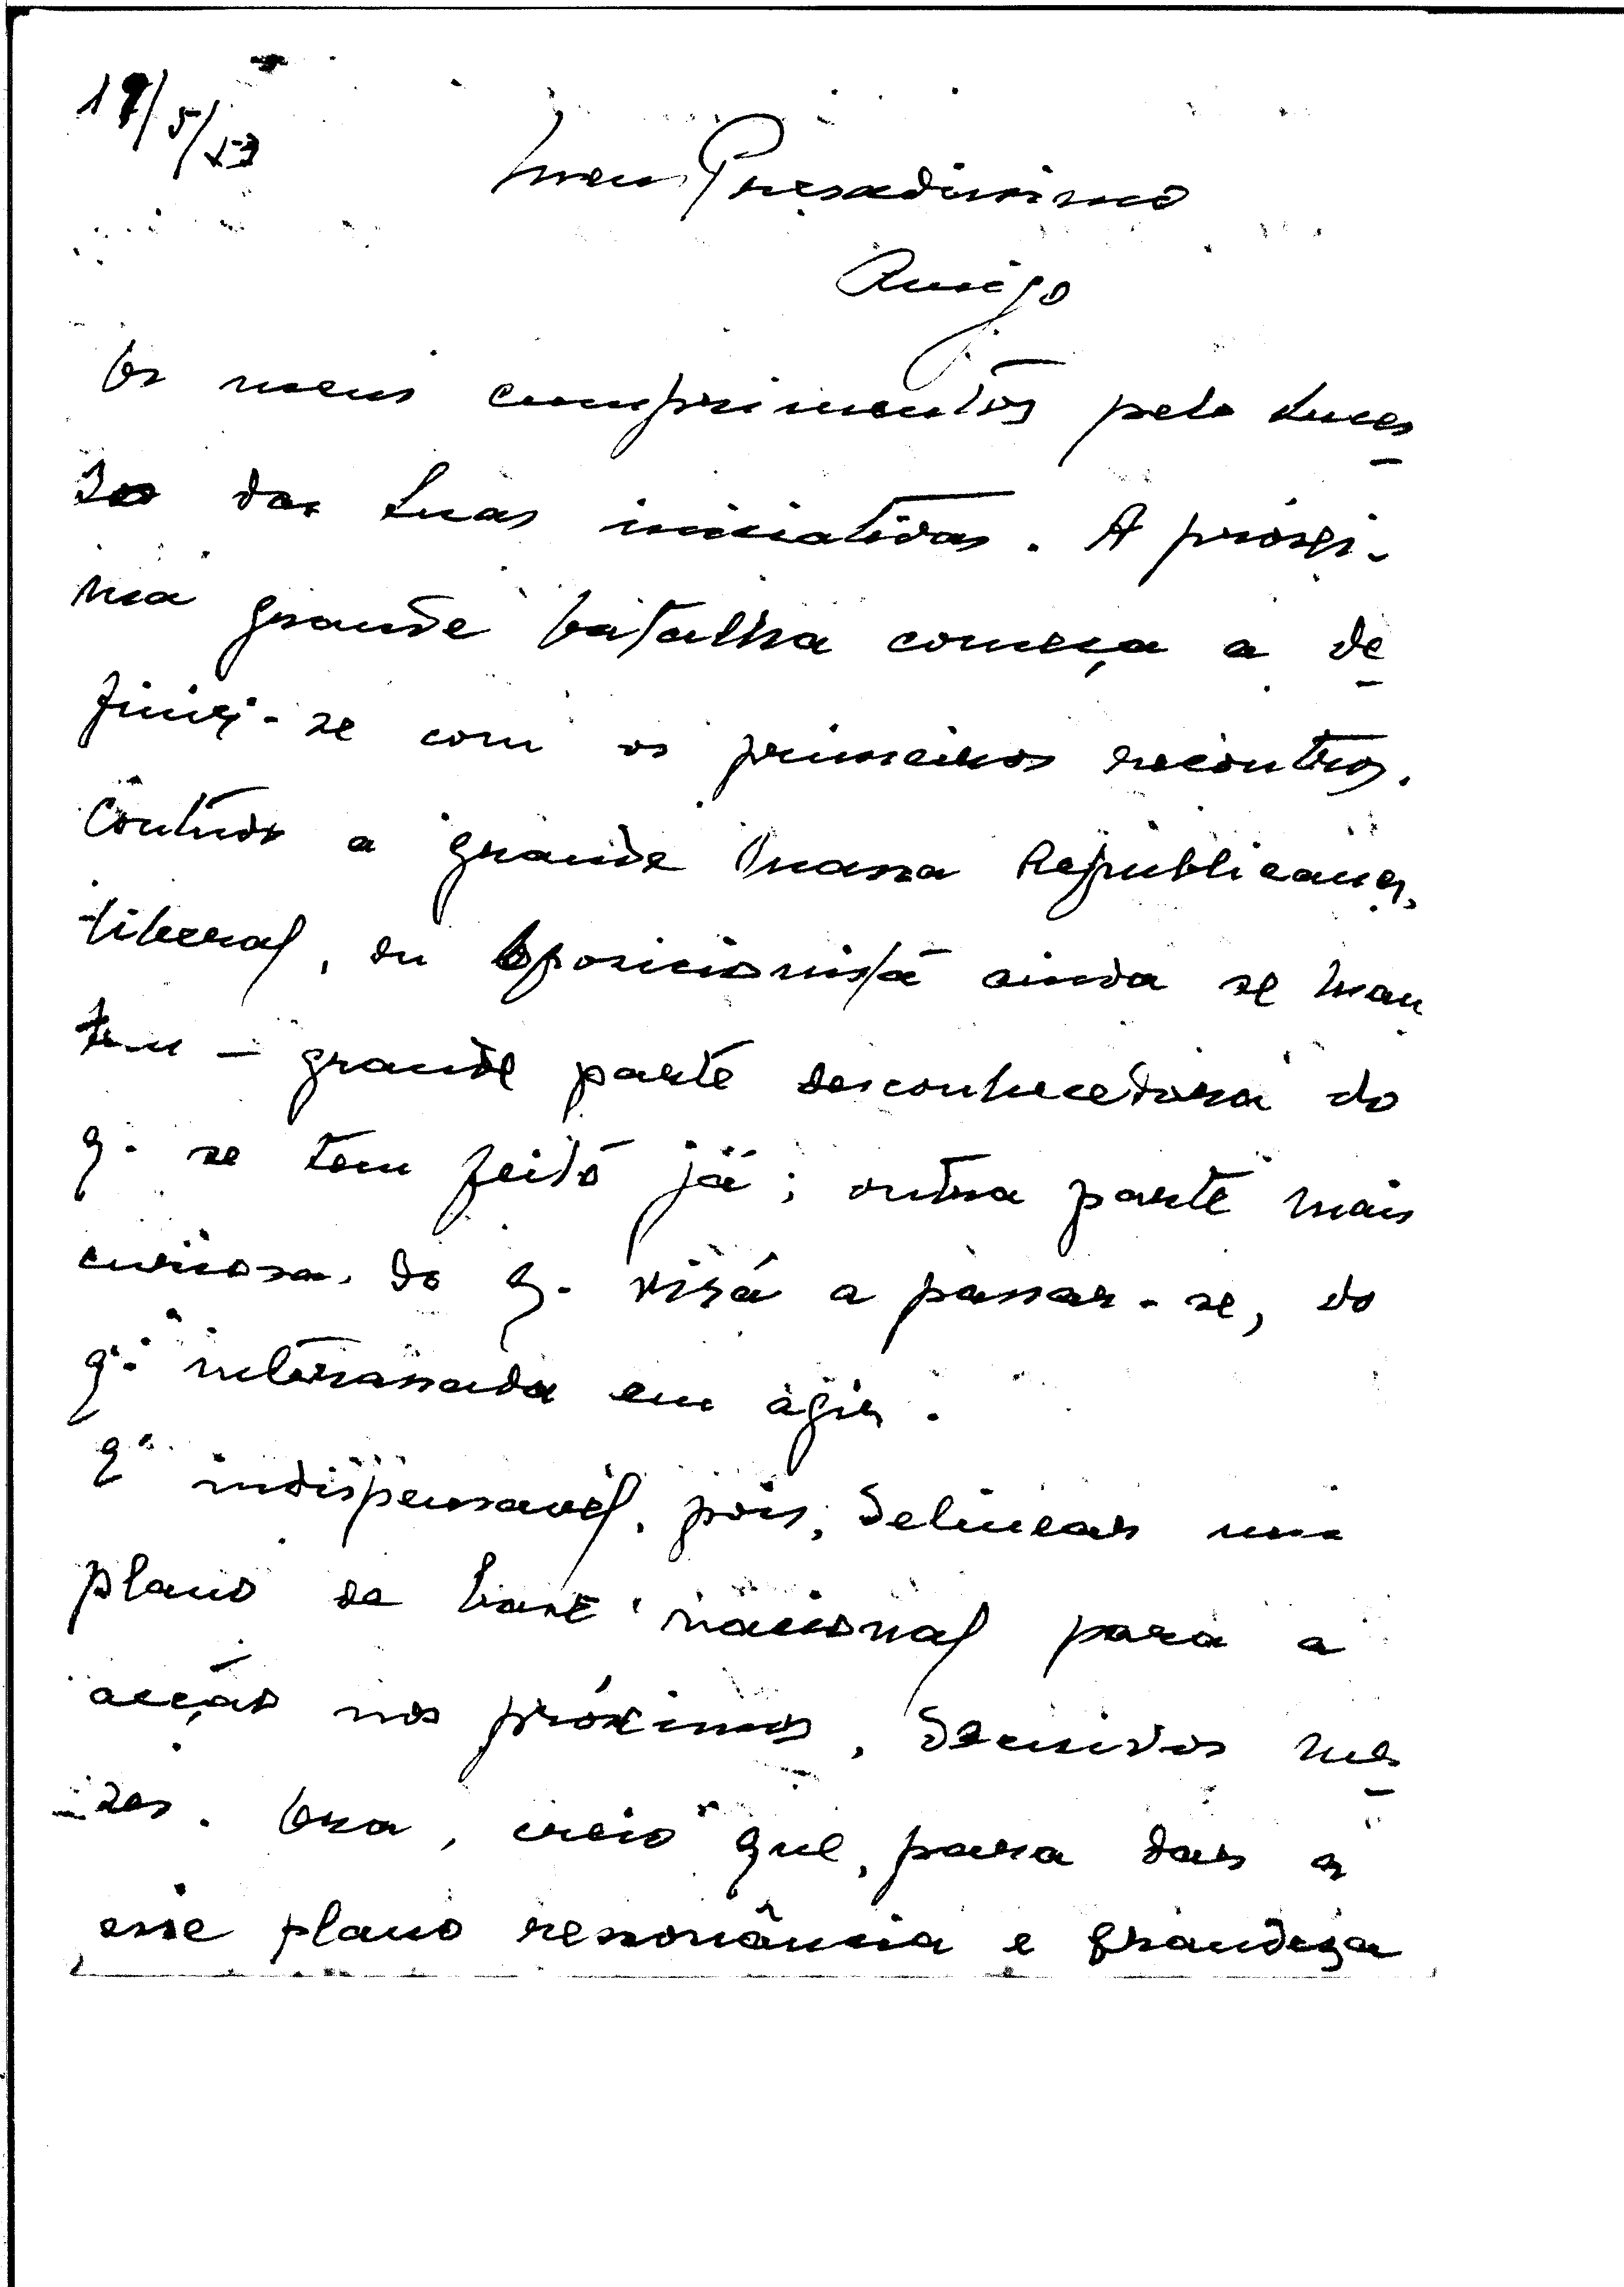 17/5/53
Meu Presadissimo
Amigo
Os meus cumprimentos pelo suces
so das suas iniciativas. A próxi-
ma grande batalha começa a de
finir-se com os primeiros recontros.
Contudo a grande massa Republicana,
liberal, ou Oposicionista ainda se man
tem — grande parte desconhecedora do
q. se tem feito já; outra parte mais
curiosa do q. virá a passar-se, do
q. interessada em agir.
É indispensavel, pois, delinear um
plano de base nacional para a
acção nos próximos, decisivos me
ses. Ora, creio que, para dar a
esse plano ressonância e grandeza